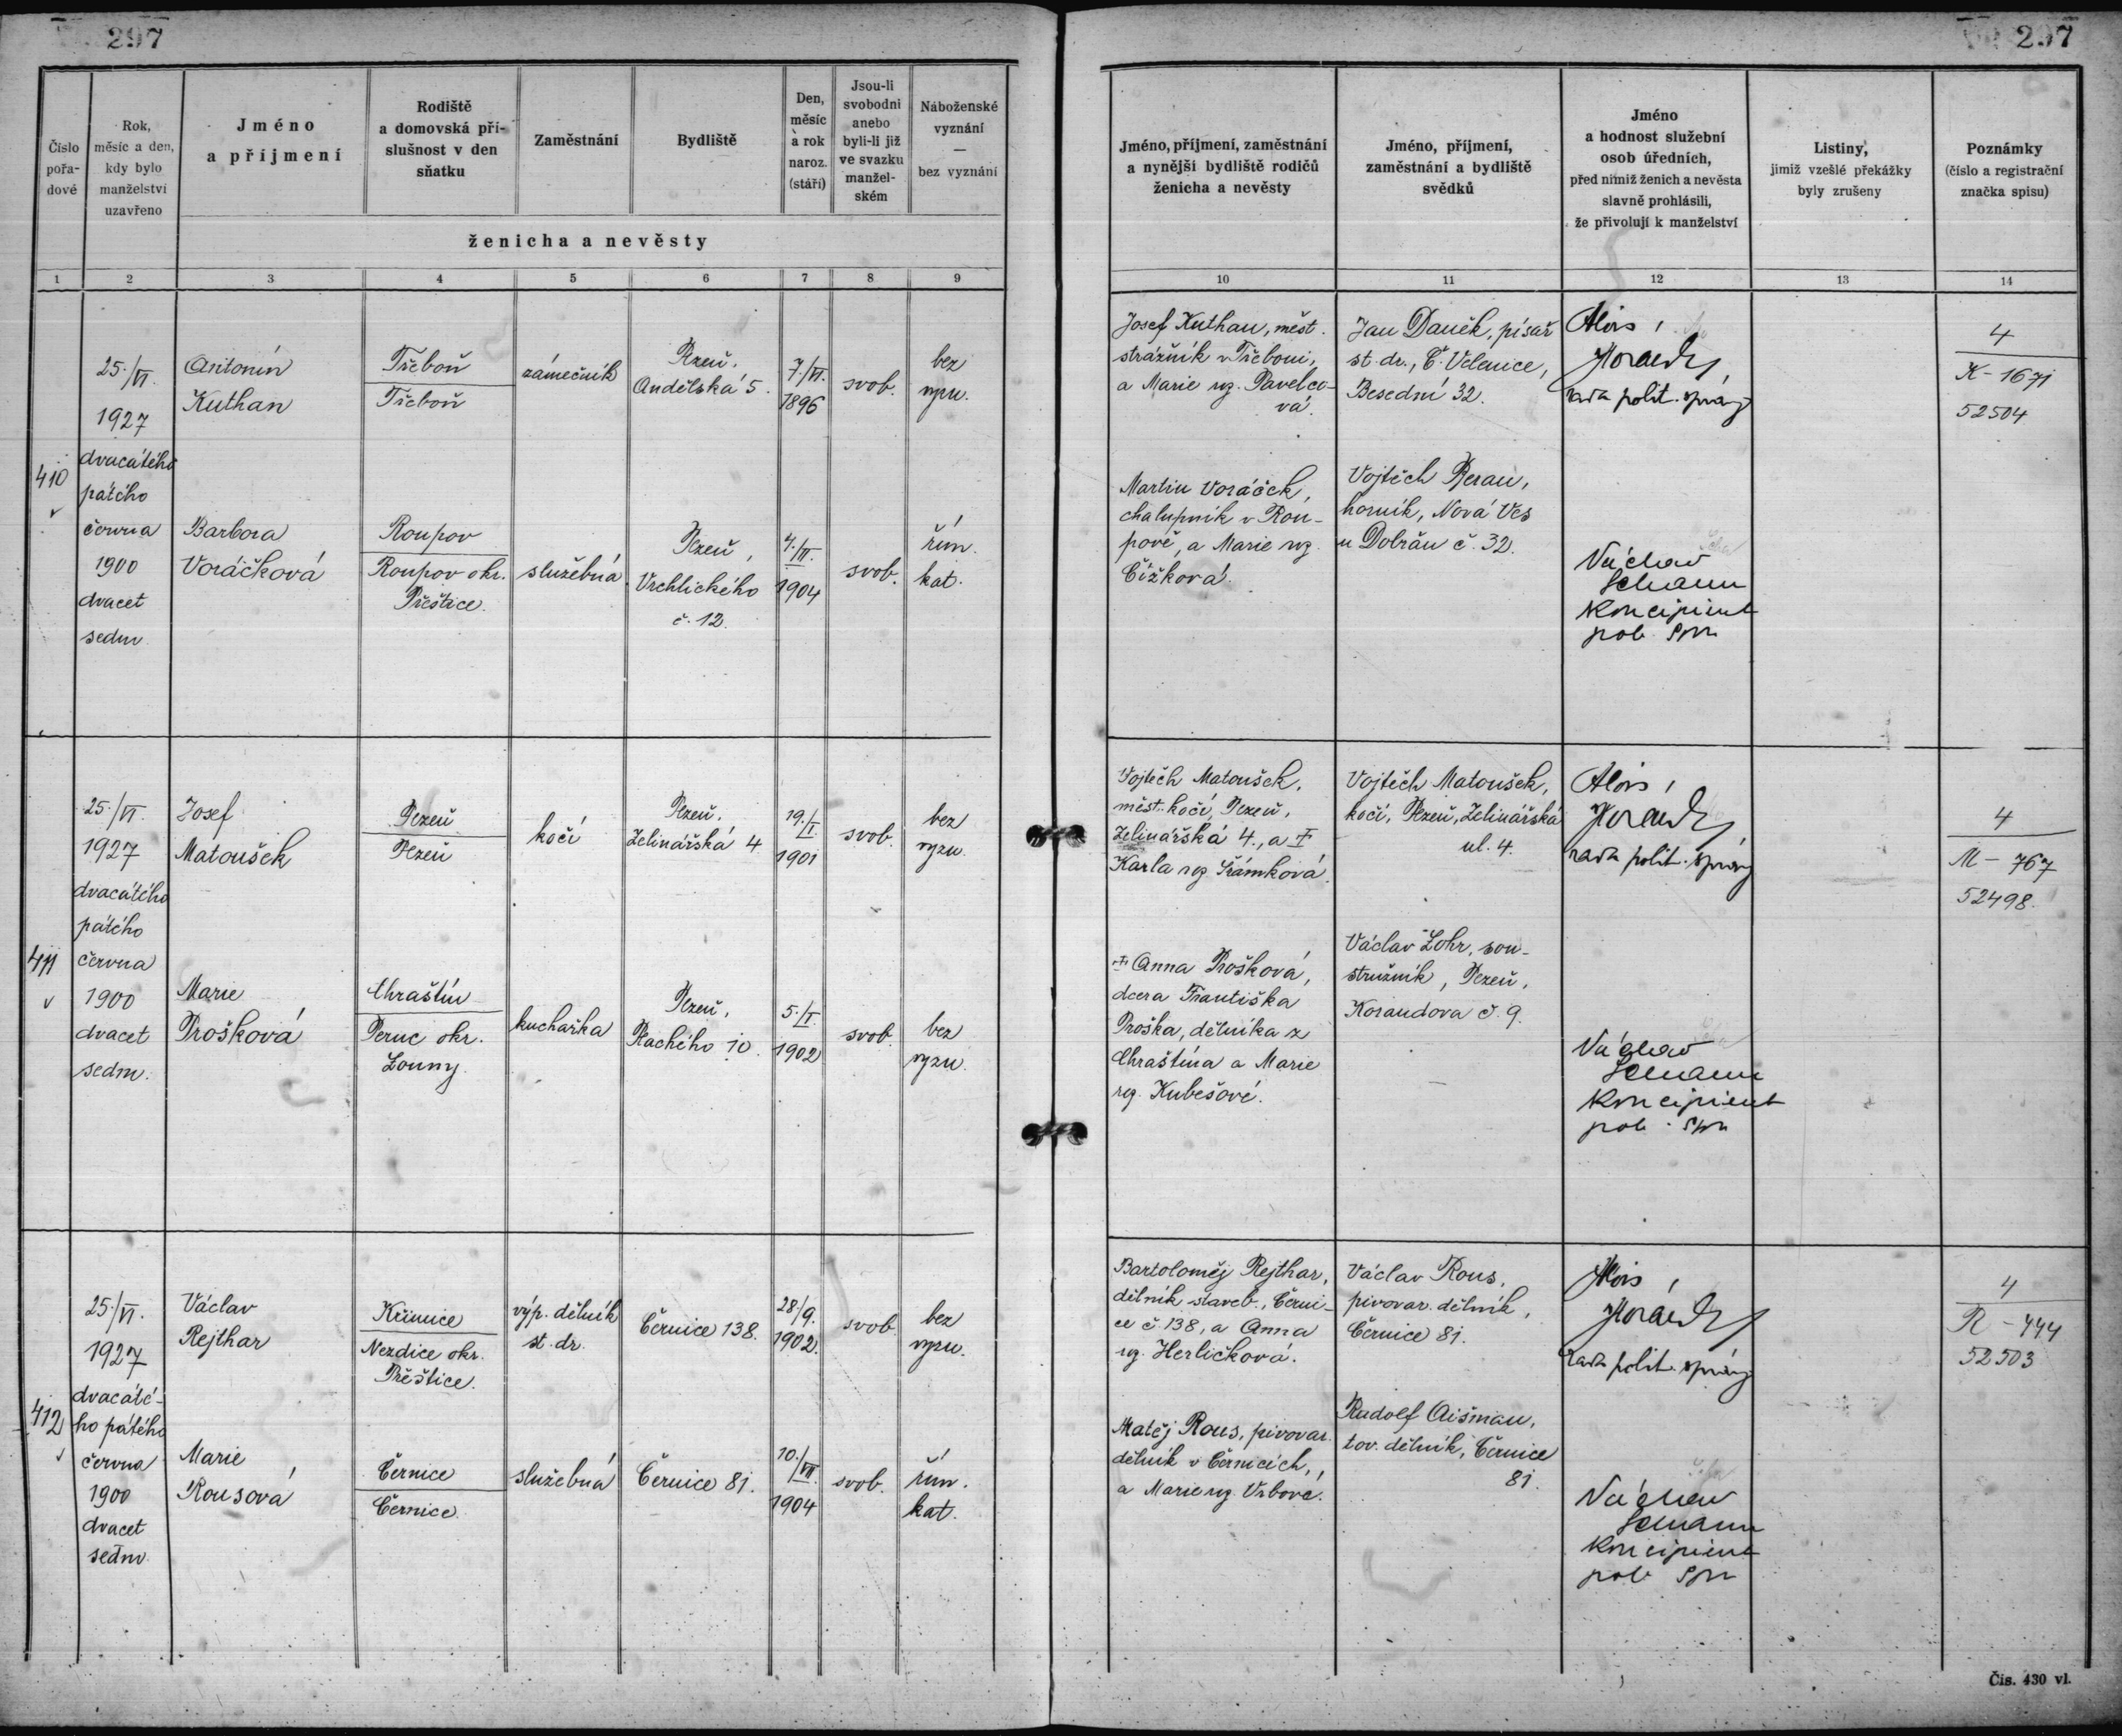 297
297
Číslo pořa-dové
Rok, měsíc a den, kdy bylo manželství uzavřeno
Jméno a příjmení
Rodiště a domovská pří-slušnost v den sňatku
Zaměstnání
Bydliště
Den, měsíc a rok naroz. (stáří)
Jsou-li svobodni anebo byli-li již ve svazku manžel-ském
Náboženské vyznání — bez vyznání
ženicha a nevěsty
Jméno, příjmení, zaměstnání a nynější bydliště rodičů ženicha a nevěsty
Jméno, příjmení, zaměstnání a bydliště svědků
Jméno a hodnost služební osob úředních, před nimiž ženich a nevěsta slavně prohlásili, že přivolují k manželství
Listiny, jimiž vzešlé překážky byly zrušeny
Poznámky (číslo a registrační značka spisu)
1 2 3 4 5 6 7 8 9 10 11 12 13 14
410
25./VI.
1927
dvacátého
pátého
června
1900
dvacet
sedm
Antonín
Kuthan
Třeboň
Třeboň
zámečník
Plzeň,
Andělská 5.
7./VI.
1896
svob.
bez
vyzn.
Josef Kuthan, měst.
strážník v Třeboni,
a Marie roz. Pavelco-
vá.
Jan Daněk, písař
st. dr., Č. Velenice,
Besední 32.
Alois
rada polit. správy
4
K - 1671
52504
Barbora
Voráčková
Roupov
Roupov okr.
Přeštice.
služebná
Plzeň,
Vrchlického
č. 12.
1904
svob.
řím.
kat.
Martin Voráček,
chalupník v Rou-
pově, a Marie roz.
Čížková.
Vojtěch Beran,
horník, Nová Ves
u Dobřan č. 32.
Václav
Schann
koncipient
pol. spr.
411
25./VI.
1927
dvacátého
pátého
června
1900
dvacet
sedm.
Josef
Matoušek
Plzeň
Plzeň
kočí
Plzeň,
Zelinářská 4
19./I.
1901
svob.
bez
vyzn.
Vojtěch Matoušek,
měst. kočí, Plzeň,
Zelinářská 4., a †
Karla roz. Šrámková.
Vojtěch Matoušek,
kočí, Plzeň, Zelinářská
ul. 4.
Alois
rada polit. správy
4
M - 767
52498.
Marie
Prošková
Chraštín
Peruc okr.
Louny.
kuchařka
Plzeň,
Plachého 10.
5./I.
1902
svob.
bez
vyzn.
† Anna Prošková,
dcera Františka
Proška, dělníka z
Chraštína a Marie
roz. Kubešové.
Václav Lohr, sou-
stružník, Plzeň,
Korandova č. 9.
Václav
Schann
koncipient
pol. spr.
412
25./VI.
1927
dvacáté-
ho pátého
června
1900
dvacet
sedm
Václav
Rejthar
Křimice
Nezdice okr.
Přeštice.
výp. dělník
st. dr.
Černice 138.
28./9.
1902.
svob.
bez
vyzn.
Bartoloměj Rejthar,
dělník staveb., Černi-
ce č. 138, a Anna
roz. Herličková.
Václav Rous,
pivovar. dělník,
Černice 81.
Alois
rada polit. správy
4
R - 444
52503
Marie
Rousová
Černice
Černice.
služebná
Černice 81.
10./VII.
1904
svob.
řím.
kat.
Matěj Rous, pivovar.
dělník v Černicích,
a Marie roz. Vrbové.
Rudolf Aišman,
tov. dělník, Černice
81.
Václav
Schann
koncipient
pol. spr.
Čís. 430 vl.